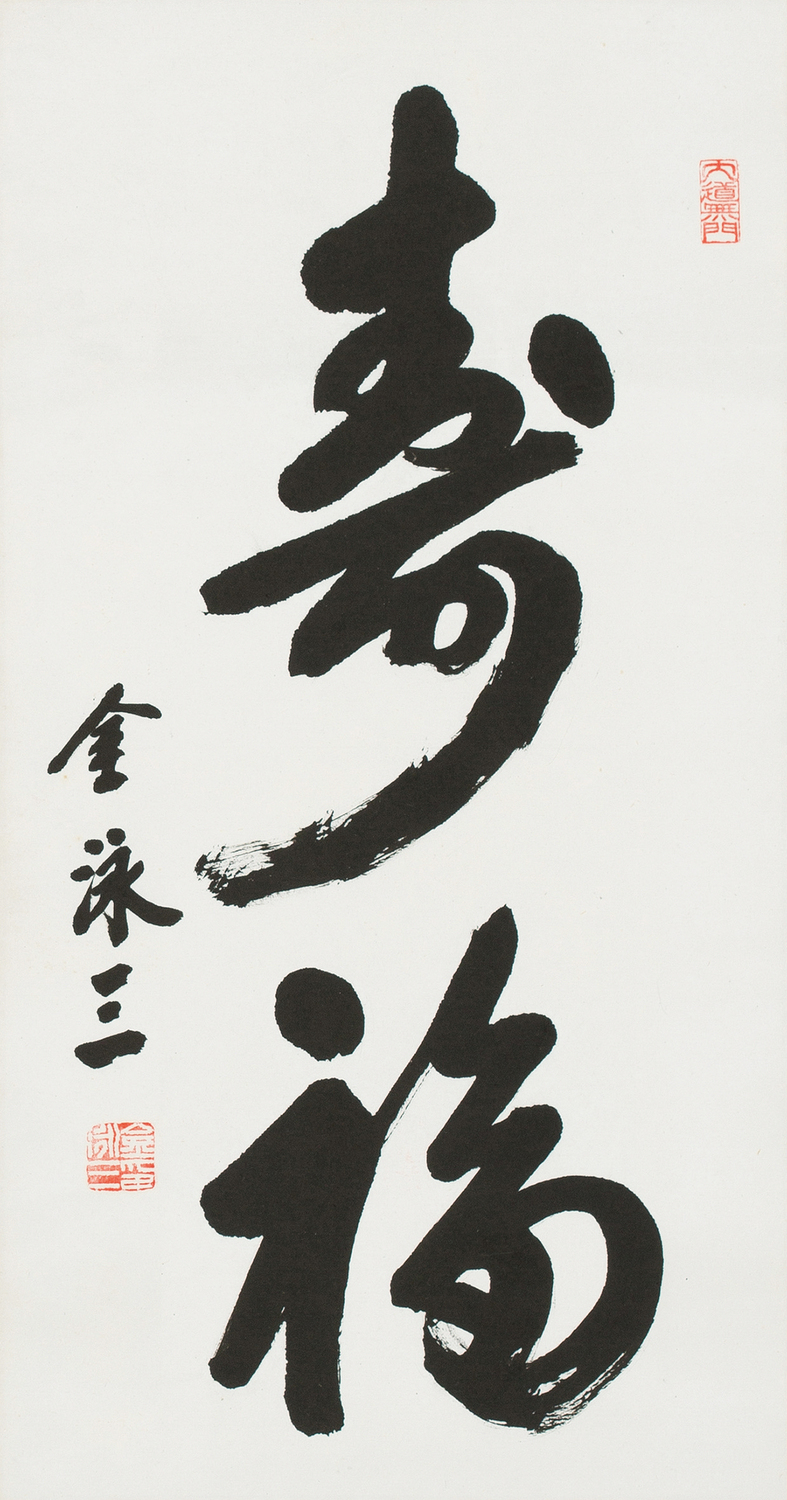 大道無門
壽福
金泳三
金泳三印